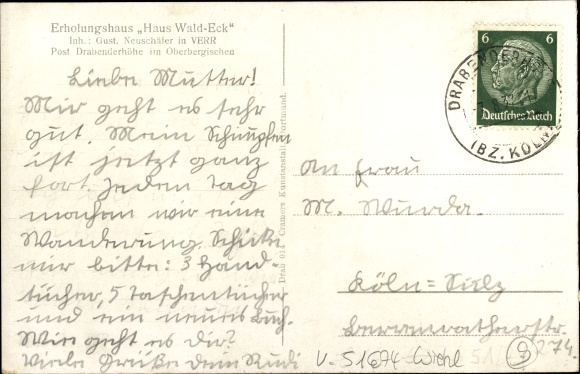 Erholungshaus „Haus Wald-Eck“
Inh.: Gust. Neuschäfer in VERR
Post Drabenderhöhe im Oberbergischen
Liebe Mutter!
Mir geht es sehr
gut. Mein Schnupfen
ist jetzt ganz
fort. Jeden Tag
machen wir eine
Wanderung. Schicke
mir bitte: 3 Hand-
tücher, 5 Taschentücher
und ein neues Buch.
Wie geht es dir?
Viele Grüße dein Rudi
Drab 01a Cramers Kunstanstalt, Dortmund.
6 6
Deutsches Reich
DRABENDERHÖHE
(BZ. KÖLN)
An Frau
M. Wurda.
Köln=Sülz
Berrenratherstr.
274.
V-51674 Wiehl
9